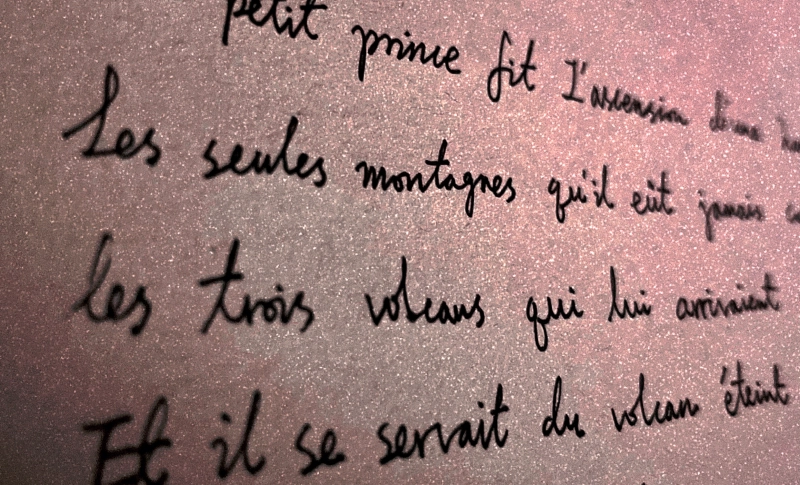 petit prince fit l'ascension d'une
Les seules montagnes qu'il eût jamais
les trois volcans qui lui arrivaient
Et il se servait du volcan éteint